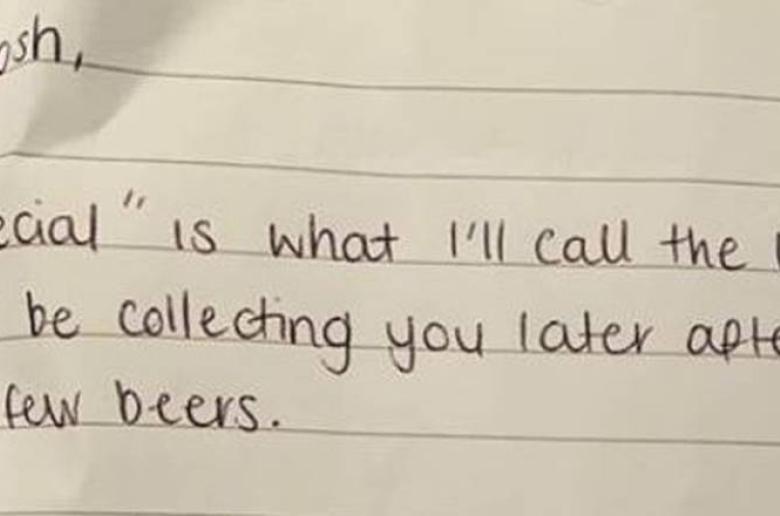 osh,
ecial" is what I'll call the
be collecting you later afte
few beers.